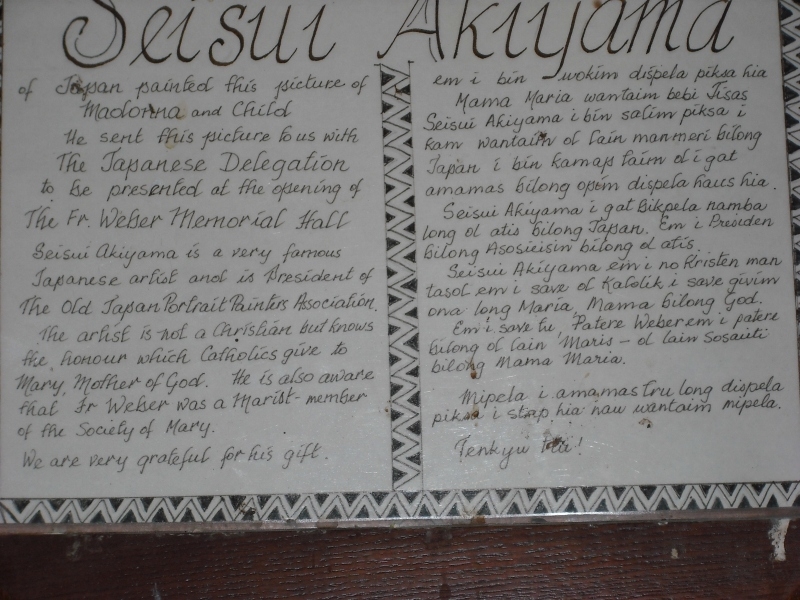 Seisui Akiyama
of Japan painted this picture of
Madonna and Child
He sent this picture to us with
The Japanese Delegation
to be presented at the opening of
The Fr. Weber Memorial Hall
Seisui Akiyama is a very famous
Japanese artist and is President of
The Old Japan Portrait Painters Association.
The artist is not a Christian but knows
the honour which Catholics give to
Mary, Mother of God. He is also aware
that Fr Weber was a Marist - member
of the Society of Mary.
We are very grateful for his gift.
em i bin wokim dispela piksa hia
Mama Maria wantaim bebi Jisas
Seisui Akiyama i bin salim piksa i
kam wantaim ol lain manmeri bilong
Japan i bin kamap taim ol i gat
amamas bilong opim dispela haus hia.
Seisui Akiyama i gat bikpela namba
long ol atis bilong Japan. Em i Presiden
bilong Asosieisin bilong ol atis.
Seisui Akiyama em i no Kristen man
tasol em i save ol Katolik i save givim
ona long Maria, Mama bilong God.
Em i save tu, Patere Weber em i patere
bilong ol lain 'Maris - ol lain Sosaiti
bilong Mama Maria.
Mipela i amamas tru long dispela
piksa i stap hia nau wantaim mipela.
Tenkyu tru!